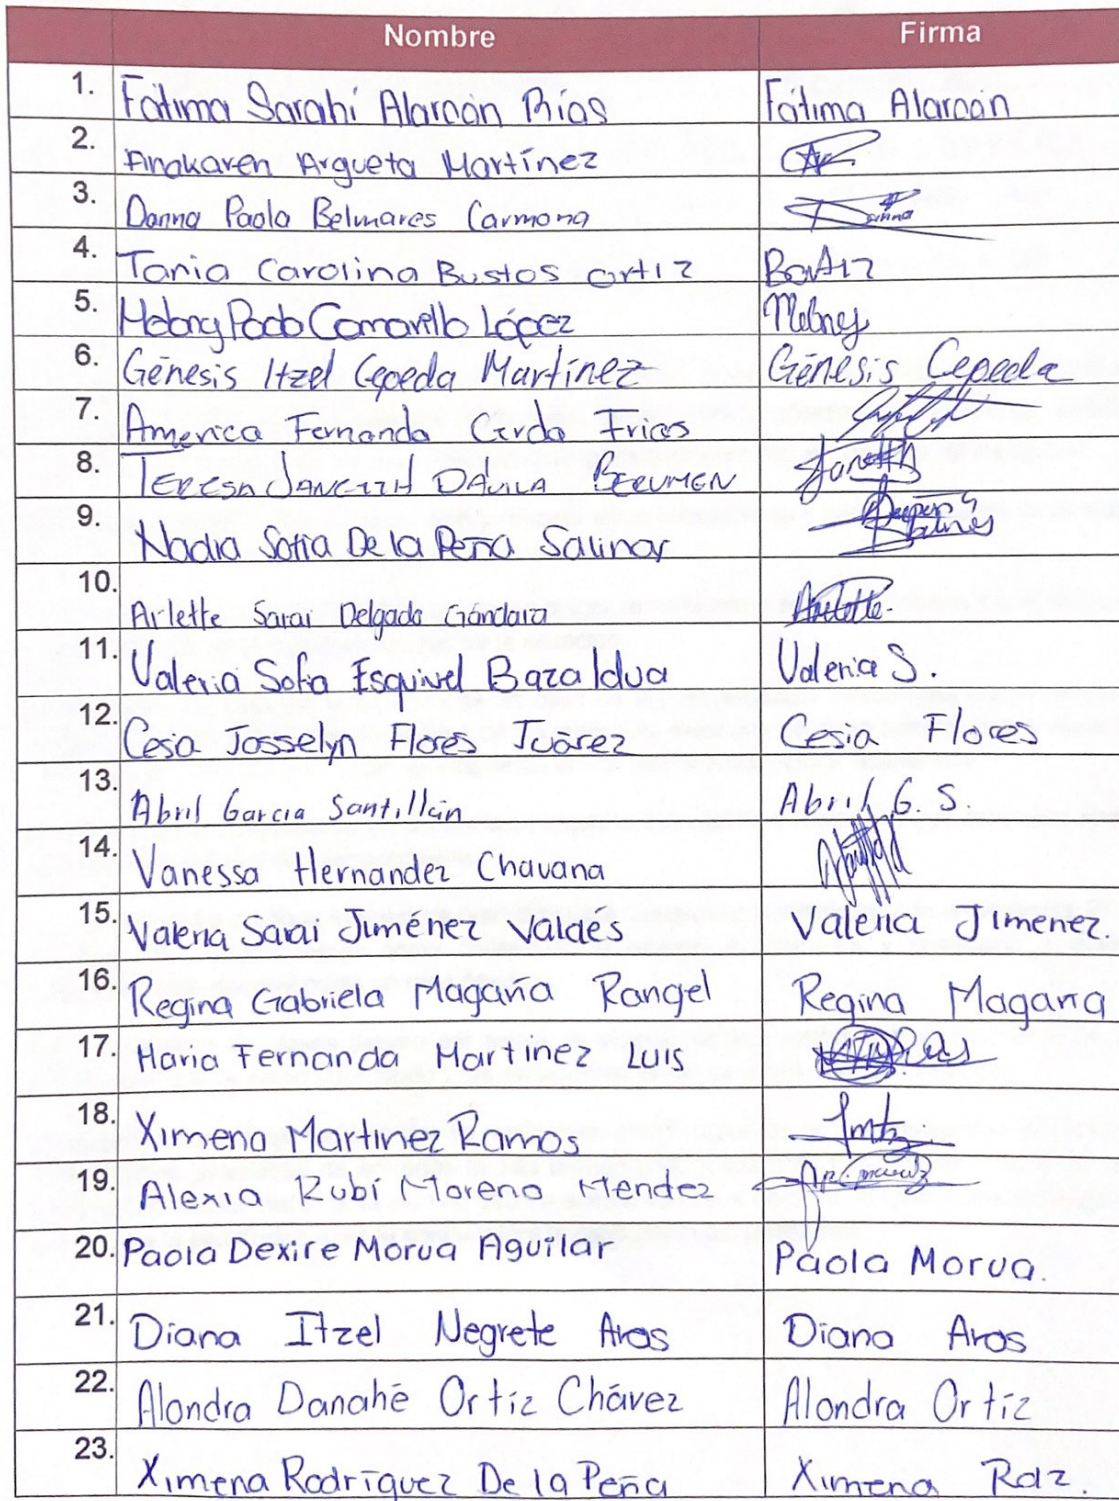 Nombre Firma
1. Fátima Sarahí Alarcón Ríos Fátima Alarcón
2. Anakaren Argueta Martínez
3. Danna Paola Belmares Carmona
4. Tania Carolina Bustos Ortiz
5. López
6. Génesis Itzel Cepeda Martínez Génesis Cepeda
7. America Fernanda Cerda Frias
8. TERESA JANETZH DÁVILA BERUMEN
9. Nadia Sofia De la Peña Salinas
10. Arlette Sarai Delgado Gándara Arlette.
11. Valeria Sofia Esquivel Bazaldua Valeria S.
12. Cesia Josselyn Flores Juárez Cesia Flores
13. Abril Garcia Santillán Abril G. S.
14. Vanessa Hernandez Chavana
15. Valeria Sarai Jiménez Valdés Valeria Jimenez.
16. Regina Gabriela Magaña Rangel Regina Magaña
17. Maria Fernanda Martinez Luis
18. Ximena Martinez Ramos
19. Alexia Rubí Moreno Mendez
20. Paola Dexire Morua Aguilar Paola Morua.
21. Diana Itzel Negrete Aros Diana Aros
22. Alondra Danahé Ortiz Chávez Alondra Ortiz
23. Ximena Rodríguez De la Peña Ximena Rdz.